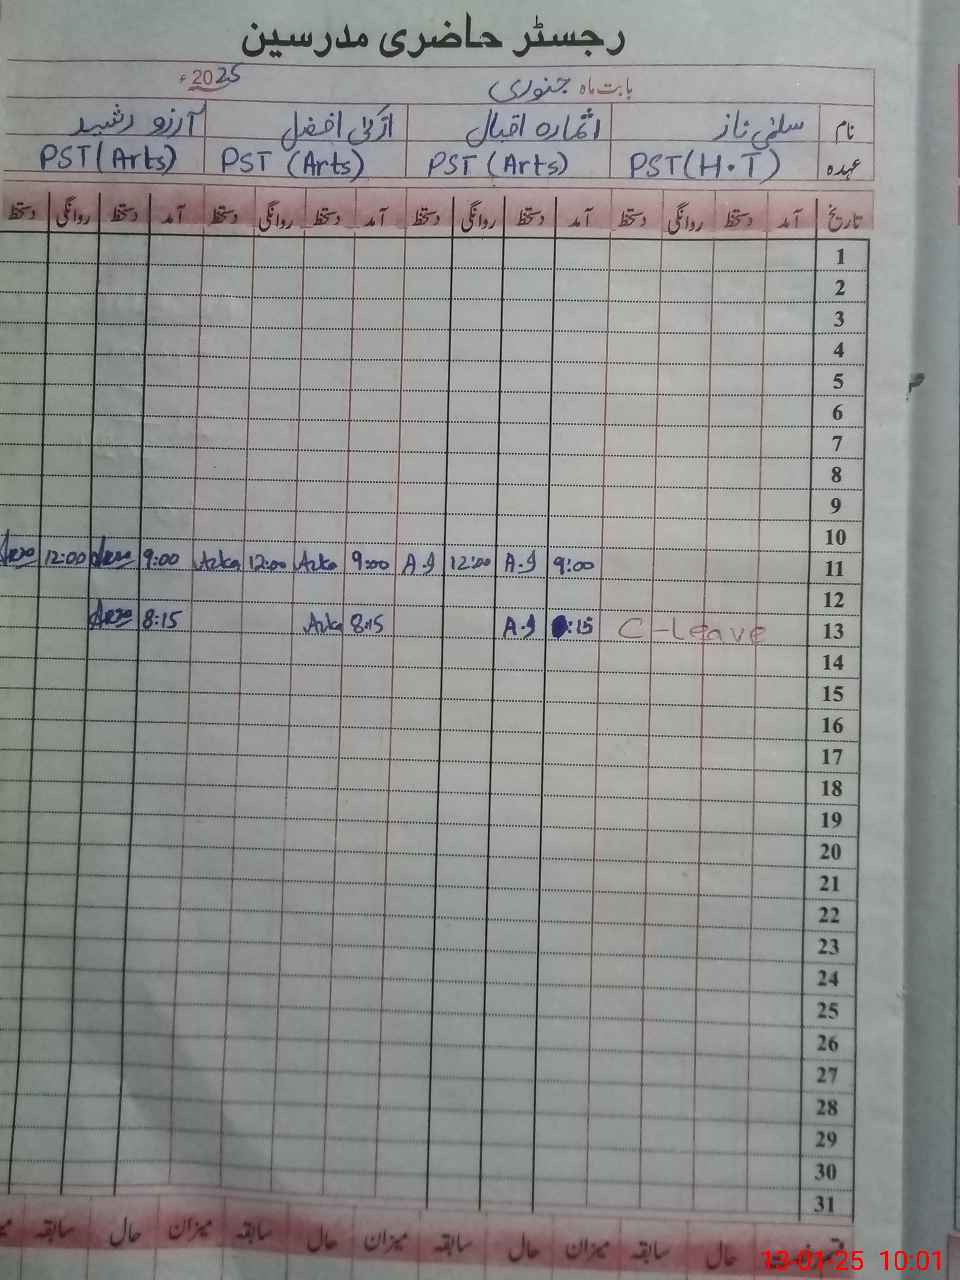 رجسٹر حاضری مدرسین
بابت ماہ جنوری 2025ء
نام سلمیٰ ناز انمارہ اقبال ازکیٰ افضل آرزو رشید
عہدہ PST(H.T) PST (Arts) PST (Arts) PST (Arts)
تاریخ آمد دستخط روانگی دستخط آمد دستخط روانگی دستخط آمد دستخط روانگی دستخط آمد دستخط روانگی دستخط
1
2
3
4
5
6
7
8
9
10
11 9:00 A.I 12:00 A.I 9:00 Azka 12:00 Azka 9:00 12:00
12
13 C-Leave :15 A.I 8:15 Azka 8:15
14
15
16
17
18
19
20
21
22
23
24
25
26
27
28
29
30
31
حال سابقہ میزان حال سابقہ میزان حال سابقہ میزان حال سابقہ
13-01-25 10:01